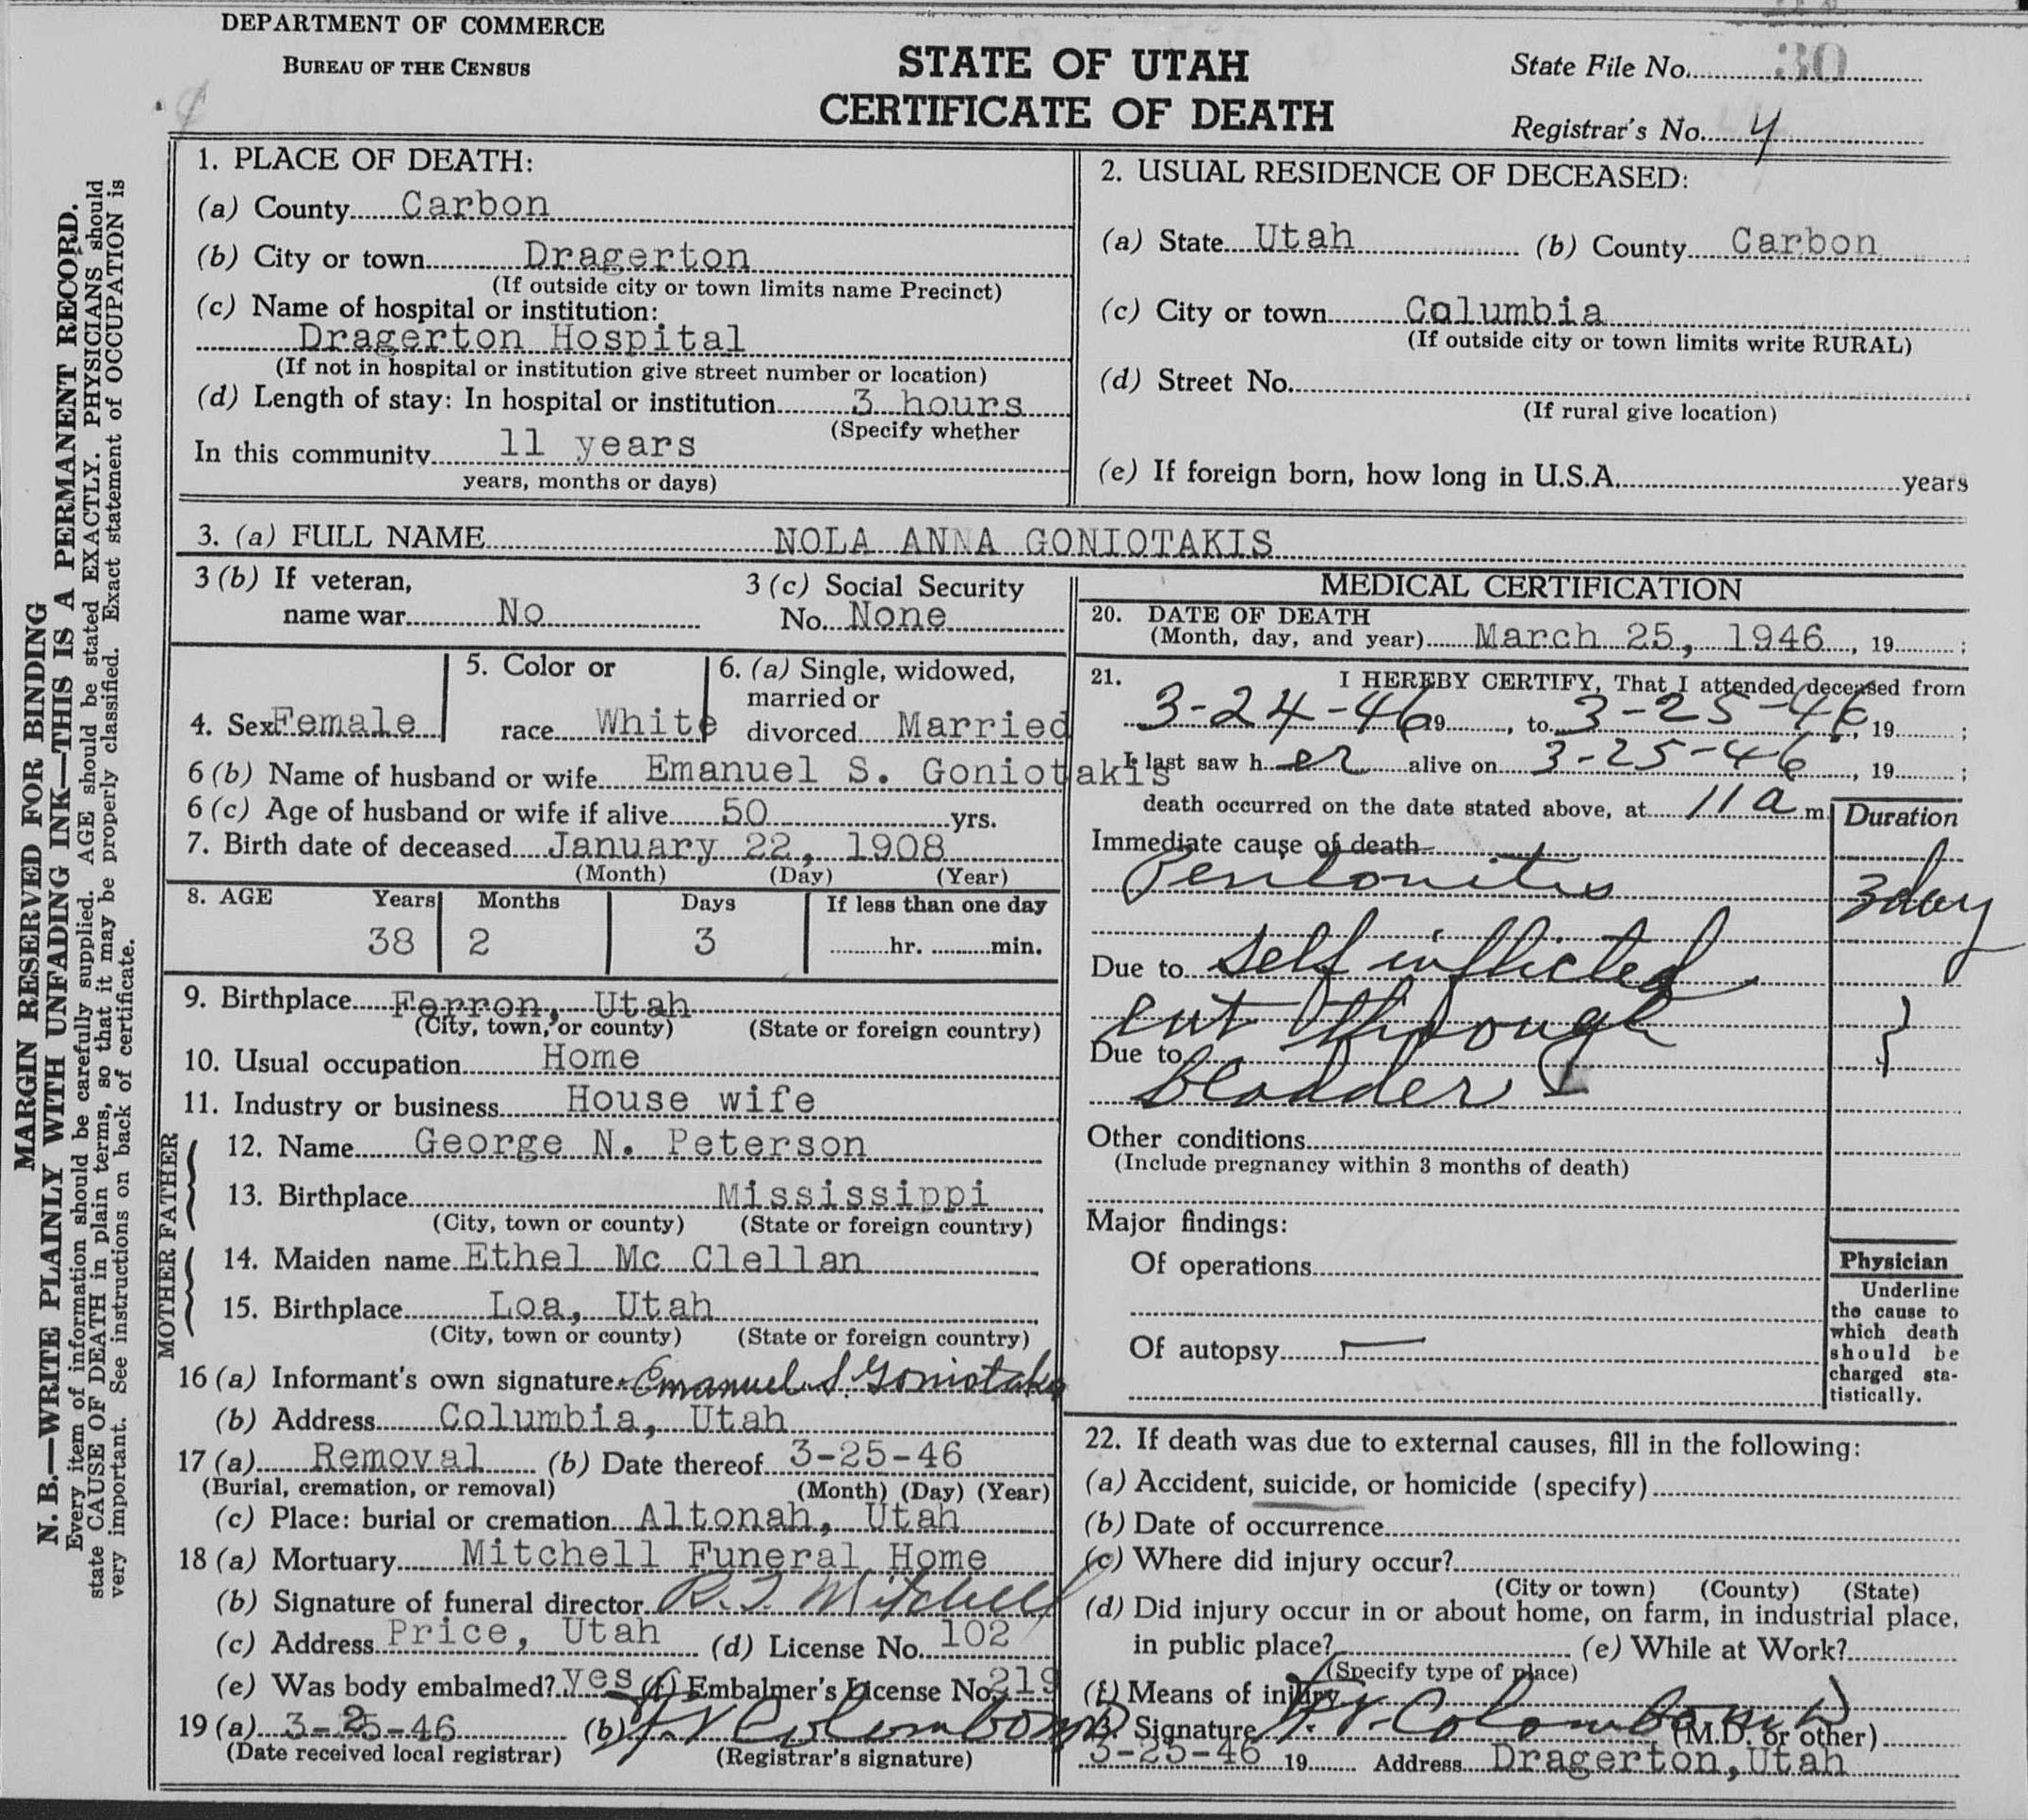 DEPARTMENT OF COMMERCE
BUREAU OF THE CENSUS
STATE OF UTAH
CERTIFICATE OF DEATH
State File No. 30
Registrar's No. 4
MARGIN RESERVED FOR BINDING
N. B.—WRITE PLAINLY WITH UNFADING INK—THIS IS A PERMANENT RECORD.
Every item of information should be carefully supplied. AGE should be stated EXACTLY. PHYSICIANS should
state CAUSE OF DEATH in plain terms, so that it may be properly classified. Exact statement of OCCUPATION is
very important. See instructions on back of certificate.
1. PLACE OF DEATH:
(a) County Carbon
(b) City or town Dragerton
(If outside city or town limits name Precinct)
(c) Name of hospital or institution:
Dragerton Hospital
(If not in hospital or institution give street number or location)
(d) Length of stay: In hospital or institution 3 hours
(Specify whether
In this community 11 years
years, months or days)
2. USUAL RESIDENCE OF DECEASED:
(a) State Utah (b) County Carbon
(c) City or town Columbia
(If outside city or town limits write RURAL)
(d) Street No.
(If rural give location)
(e) If foreign born, how long in U.S.A. years
3. (a) FULL NAME NOLA ANNA GONIOTAKIS
3 (b) If veteran,
name war No
3 (c) Social Security
No. None
4. Sex Female
5. Color or
race White
6. (a) Single, widowed,
married or
divorced Married
6 (b) Name of husband or wife Emanuel S. Goniotakis
6 (c) Age of husband or wife if alive 50 yrs.
7. Birth date of deceased January 22, 1908
(Month) (Day) (Year)
8. AGE Years Months Days If less than one day
38 2 3 hr. min.
9. Birthplace Ferron, Utah
(City, town, or county) (State or foreign country)
10. Usual occupation Home
11. Industry or business House wife
FATHER
12. Name George N. Peterson
13. Birthplace Mississippi
(City, town or county) (State or foreign country)
MOTHER
14. Maiden name Ethel Mc Clellan
15. Birthplace Loa, Utah
(City, town or county) (State or foreign country)
16 (a) Informant's own signature Emanuel S. Goniotakis
(b) Address Columbia, Utah
17 (a) Removal (b) Date thereof 3-25-46
(Burial, cremation, or removal) (Month) (Day) (Year)
(c) Place: burial or cremation Altonah, Utah
18 (a) Mortuary Mitchell Funeral Home
(b) Signature of funeral director R. J. Mitchell
(c) Address Price, Utah (d) License No. 102
(e) Was body embalmed? yes (f) Embalmer's License No. 219
19 (a) 3-25-46 (b) Colombo MD
(Date received local registrar) (Registrar's signature)
MEDICAL CERTIFICATION
20. DATE OF DEATH
(Month, day, and year) March 25, 1946, 19 ;
21. I HEREBY CERTIFY, That I attended deceased from
3-24-46 19 , to 3-25-46, 19 ;
I last saw h er alive on 3-25-46, 19 ;
death occurred on the date stated above, at 11 a m.
Duration
Immediate cause of death
Peritonitis 3 day
Due to self inflicted
cut through
Due to
bladder
Other conditions
(Include pregnancy within 3 months of death)
Major findings:
Of operations
Of autopsy —
Physician
Underline
the cause to
which death
should be
charged sta-
tistically.
22. If death was due to external causes, fill in the following:
(a) Accident, suicide, or homicide (specify)
(b) Date of occurrence
(c) Where did injury occur?
(City or town) (County) (State)
(d) Did injury occur in or about home, on farm, in industrial place,
in public place? (e) While at Work?
(Specify type of place)
(f) Means of injury
Signature Colombo MD (M.D. or other)
3-25-46 19 Address Dragerton, Utah